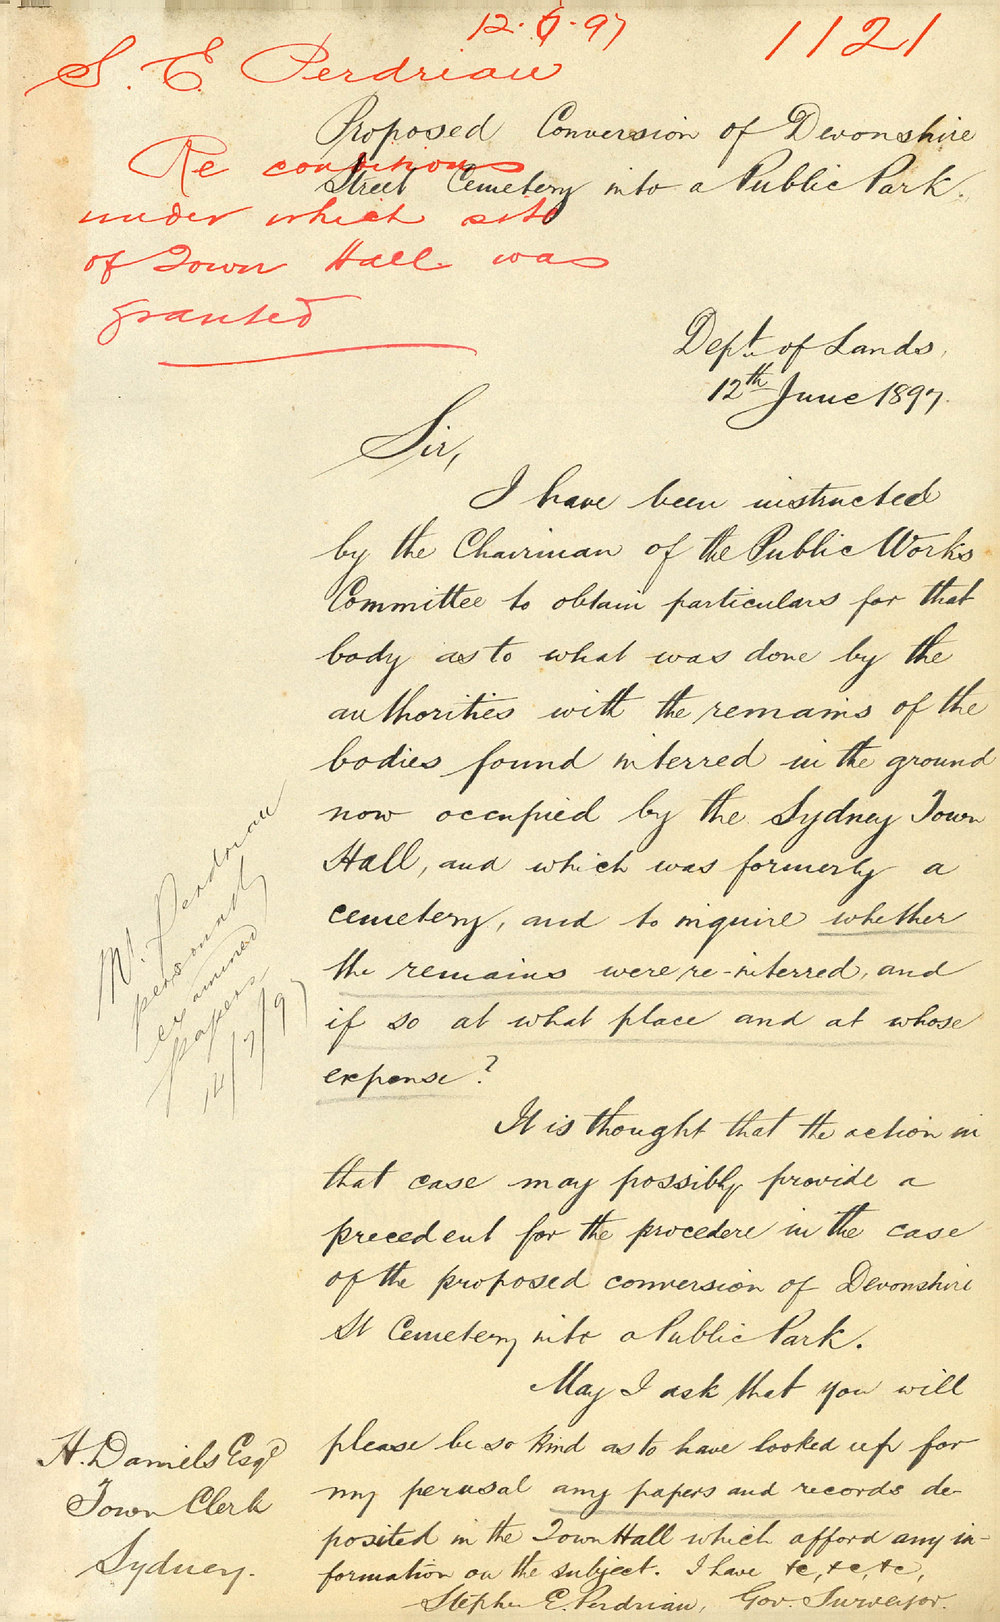 12.6.97
1121
S. E. Perdriau
Re conditions
under which site
of Town Hall was
granted
Proposed Conversion of Devonshire
Street Cemetery into a Public Park.
Dept. of Lands,
12th June 1897.
Sir,
I have been instructed
by the Chairman of the Public Works
Committee to obtain particulars for that
body as to what was done by the
authorities with the remains of the
bodies found interred in the ground
now occupied by the Sydney Town
Hall, and which was formerly a
cemetery, and to inquire whether
the remains were re-interred, and
if so at what place and at whose
expense?
It is thought that the action in
that case may possibly provide a
precedent for the procedere in the case
of the proposed conversion of Devonshire
St Cemetery into a Public Park.
May I ask that you will
please be so kind as to have looked up for
my perusal any papers and records de-
posited in the Town Hall which afford any in-
formation on the subject. I have &c, &c, &c,
Stephen E. Perdriau, Gov. Surveyor.
H. Daniels Esqr
Town Clerk
Sydney.
Mr. Perdriau
personally
examined
papers
14/7/97